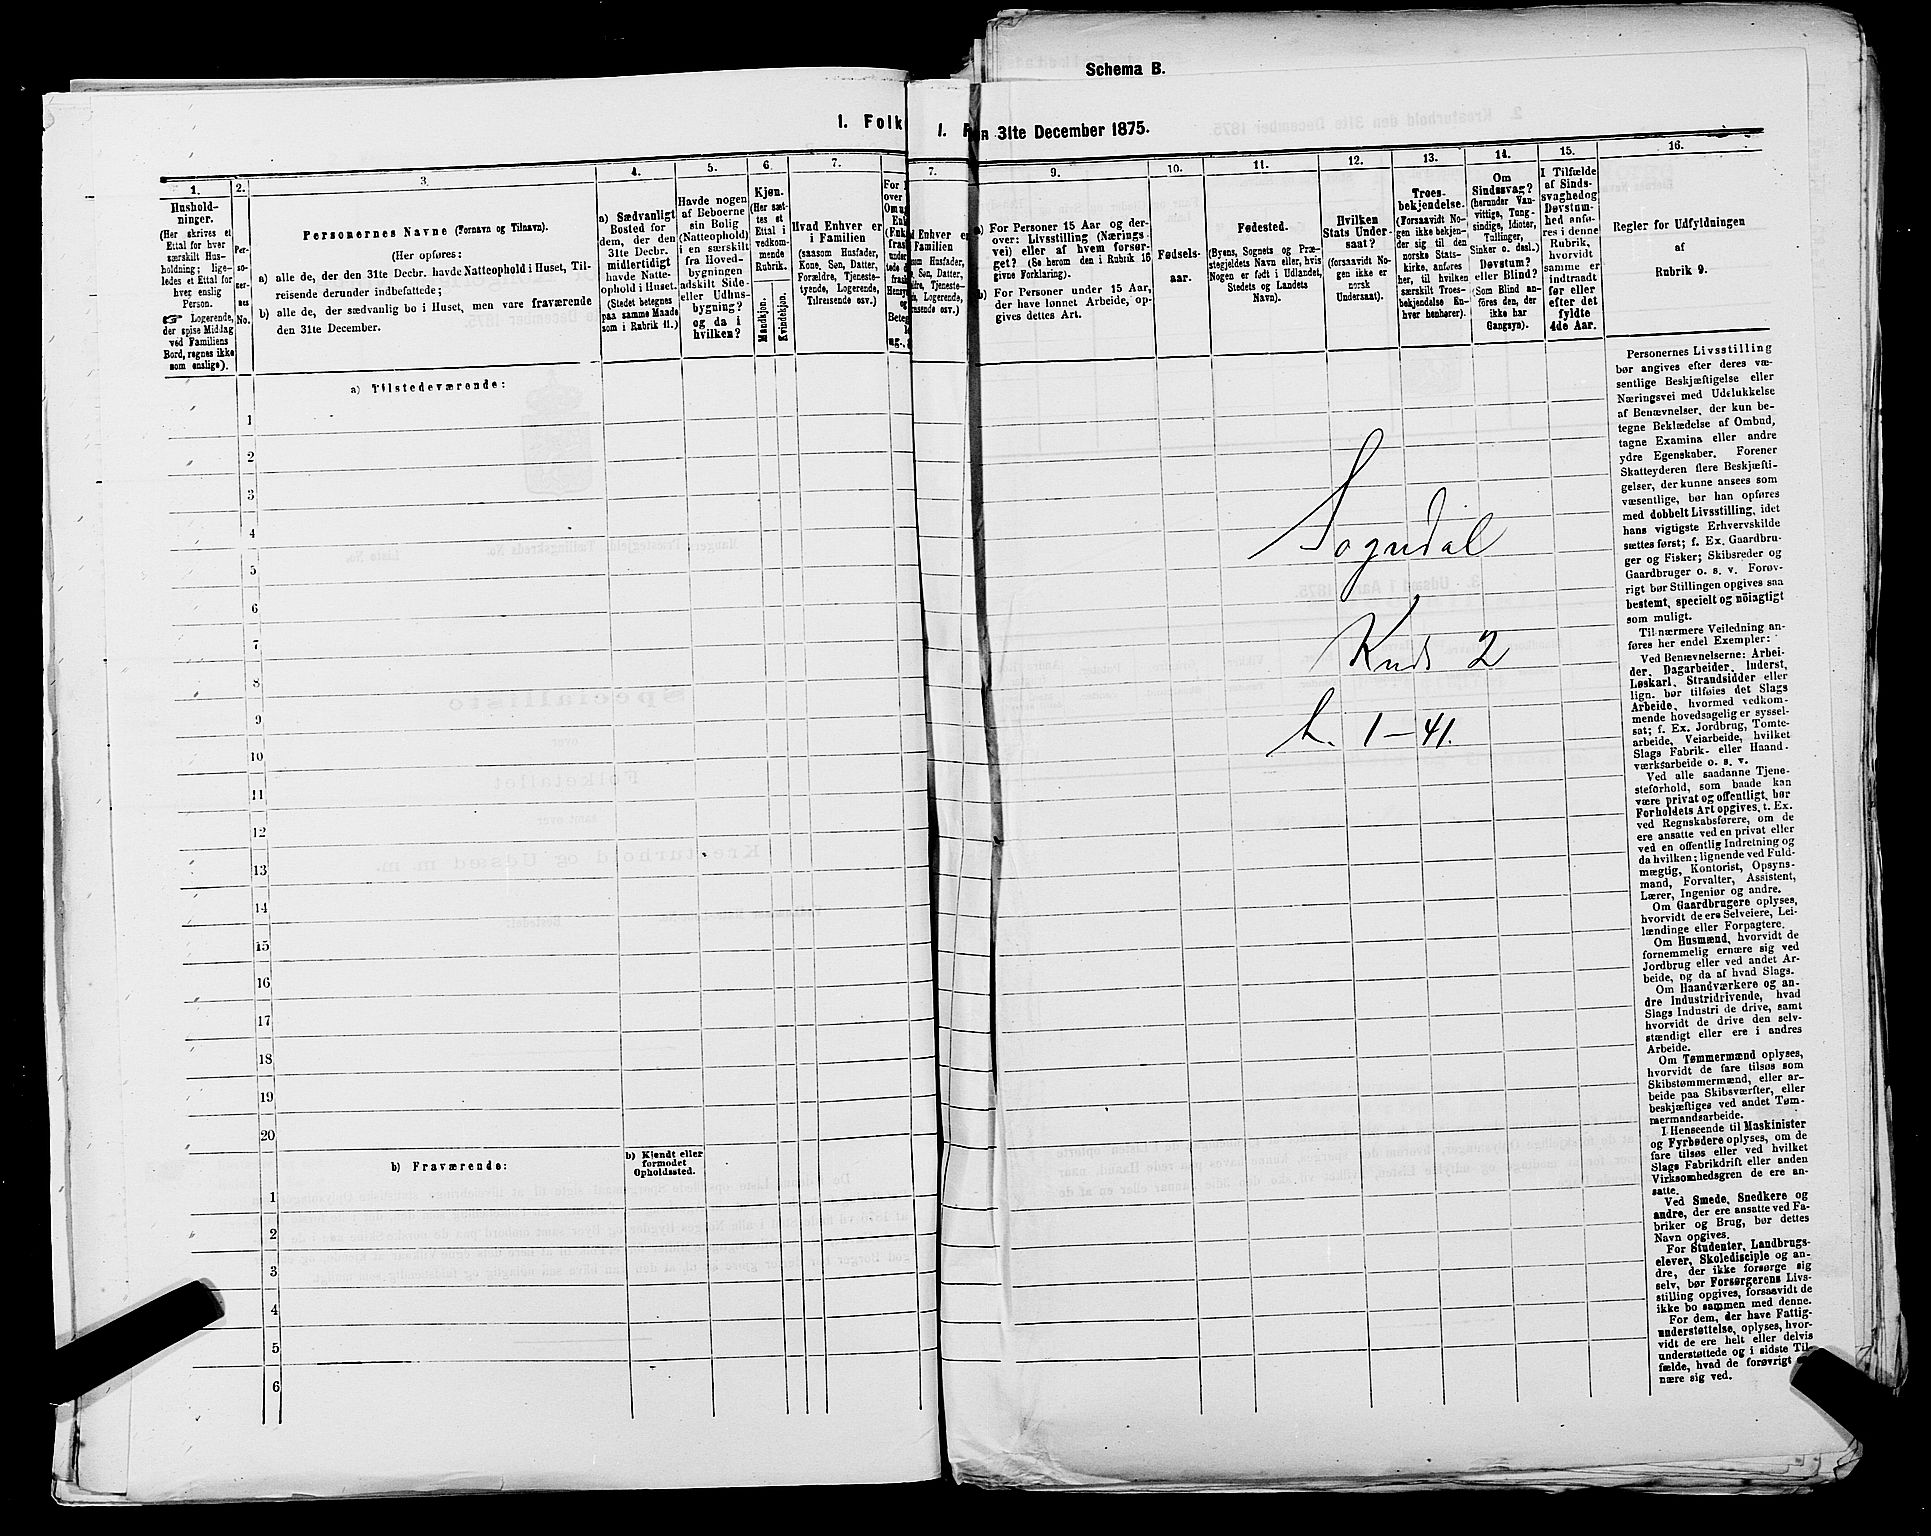 Schema B.
1. Folk
1. F
R 31te December 1875.
1.
Hushold-
ninger.
(Her skrives et
Ettal for hver
særskilt Hus-
holdning; lige-
ledes et Ettal for
hver enslig
Person.
☞ Logerende,
der spise Middag
ved Familiens
Bord, regnes ikke
som enslige).
2.
Per-
so-
ner-
nes
No.
3.
Personernes Navne (Fornavn og Tilnavn).
(Her opføres:
a) alle de, der den 31te Decbr. havde Natteophold i Huset, Til-
reisende derunder indbefattede;
b) alle de, der sædvanlig bo i Huset, men vare fraværende
den 31te December.
4.
a) Sædvanligt
Bosted for
dem, der den
31te Decbr.
midlertidigt
havde Natte-
ophold i Huset.
(Stedet betegnes
paa samme Maade
som i Rubrik 11.)
5.
Havde nogen
af Beboerne
sin Bolig
(Natteophold)
i en særskilt
fra Hoved-
bygningen
adskilt Side-
eller Udhus-
bygning?
og da i
hvilken?
6.
Kjøn.
(Her sæt-
tes et
Ettal i
vedkom-
mende
Rubrik.
Mandkjøn.
Kvindekjøn.
7.
Hvad Enhver er
i Familien
(saasom Husfader,
Kone, Søn, Datter,
Forældre, Tjeneste-
tyende, Logerende,
Tilreisende osv.)
7.
d Enhver er
Familien
n Husfader,
, Søn, Datter,
re, Tjeneste-
, Logerende,
eisende osv.)
9.
a) For Personer 15 Aar og der-
over: Livsstilling (Nærings
vei) eller af hvem forsør-
get? (Se herom den i Rubrik 16
givne Forklaring).
b) For Personer under 15 Aar,
der have lønnet Arbeide, op-
gives dettes Art.
10.
Fødsels-
aar.
11.
Fødested.
(Byens, Sognets og Præ-
stegjeldets Navn eller, hvis
Nogen er født i Udlandet,
Stedets og Landets
Navn).
12.
Hvilken
Stats Under-
saat?
(forsaavidt No-
gen ikke er
norsk
Undersaat).
13.
Troes-
bekjendelse.
(Forsaavidt No-
gen ikke bekjen-
der sig til den
norske Stats-
kirke, anføres
her, til hvilken
særskilt Troes-
bekjendelse En-
hver henhører).
14.
Om
Sindssvag?
(herunder Van-
vittige, Tung-
sindige, Idioter,
Tullinger,
Sinker o. desl.)
Døvstum?
eller Blind?
(Som Blind an-
føres den, der
ikke har
Gangsyn).
15.
I Tilfælde
af Sinds-
svaghed og
Døvstum-
hed anfø-
res i denne
Rubrik,
hvorvidt
samme er
indtraadt
før eller
efter det
fyldte
4de Aar.
16.
Regler for Udfyldningen
af
Rubrik 9.
a) Tilstedeværende:
1
2
3
4
5
6
7
8
9
10
11
12
13
14
15
16
17
18
19
20
b) Fraværende:
b) Kjendt eller
formodet
Opholdssted.
1
2
3
4
5
6
Sogndal
Kreds 2
L. 1-41.
Personernes Livsstilling
bør angives efter deres væ-
sentlige Beskjæftigelse eller
Næringsvei med Udelukkelse
af Benævnelser, der kun be-
tegne Beklædelse af Ombud,
tagne Examina eller andre
ydre Egenskaber. Forener
Skatteyderen flere Beskjæfti-
gelser, der kunne ansees som
væsentlige, bør han opføres
med dobbelt Livsstilling, idet
hans vigtigste Erhvervskilde
sættes først; f. Ex. Gaardbru-
ger og Fisker; Skibsreder og
Gaardbruger o. s. v. Forøv-
rigt bør Stillingen opgives saa
bestemt, specielt og nöiagtigt
som muligt.
Til nærmere Veiledning an-
føres her endel Exempler:
Ved Benævnelserne: Arbei-
der, Dagarbeider, Inderst,
Løskarl, Strandsidder eller
lign. bør tilføies det Slags
Arbeide, hvormed vedkom-
mende hovedsagelig er syssel-
sat; f. Ex. Jordbrug, Tomte-
arbeide, Veiarbeide, hvilket
Slags Fabrik- eller Haand-
værksarbeide o. s. v.
Ved alle saadanne Tjene-
steforhold, som baade kan
være privat og offentligt, bør
Forholdets Art opgives, t. Ex.
ved Regnskabsførere, om de
ere ansatte ved en privat eller
ved en offentlig Indretning og
da hvilken; lignende ved Fuld-
mægtig, Kontorist, Opsyns-
mand, Forvalter, Assistent,
Lærer, Ingeniør og andre.
Om Gaardbrugere oplyses,
hvorvidt de ere Selveiere, Lei-
lændinge eller Forpagtere.
Om Husmænd, hvorvidt de
fornemmelig ernære sig ved
Jordbrug eller ved andet Ar-
beide, og da af hvad Slags.
Om Haandværkere og an-
dre Industridrivende, hvad
Slags Industri de drive, samt
hvorvidt de drive den selv-
stændigt eller ere i andres
Arbeide.
Om Tømmermænd oplyses,
hvorvidt de fare tilsøs som
Skibstømmermænd, eller ar-
beide paa Skibsværfter, eller
beskjæftiges ved andet Tøm-
mermandsarbeide.
I Henseende til Maskinister
og Fyrbødere oplyses, om de
fare tilsøs eller ved hvilket
Slags Fabrikdrift eller anden
Virksomhedsgren de ere an-
satte.
Ved Smede, Snedkere og
andre, der ere ansatte ved Fa-
briker og Brug, bør dettes
Navn opgives.
For Studenter, Landbrugs-
elever, Skoledisciple og an-
dre, der ikke forsørge sig
selv, bør Forsørgerens Livs-
stilling opgives, forsaavidt de
ikke bo sammen med denne.
For dem, der have Fattig-
understøttelse, oplyses, hvor-
vidt de ere helt eller delvis
understøttede og i sidste Til-
fælde, hvad de forøvrigt
nære sig ved.